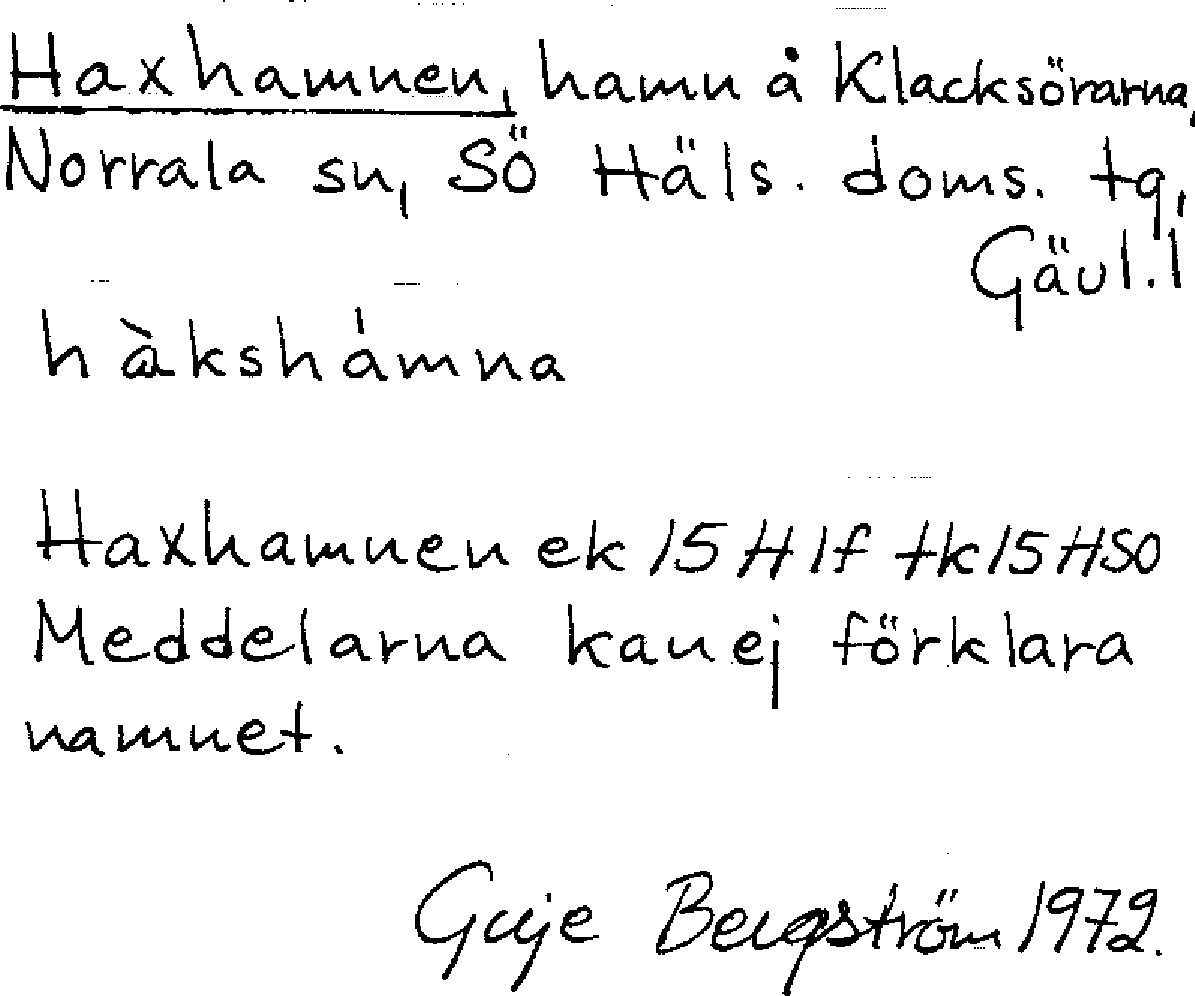 Haxhamnen, hamn å Klacksörarna,
Norrala sn, SÖ Häls. doms. tg,
Gävl. l
hàkshámna
Haxhamnen ek 15 H 1f tk 15 HSO
Meddelarna kan ej förklara
namnet.
Guje Bergström 1972.